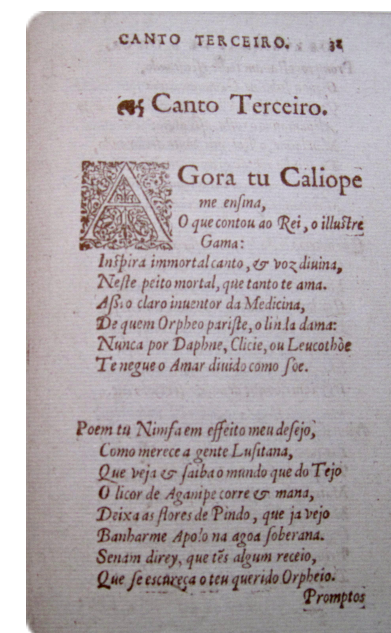 CANTO TERCEIRO. 38
Canto Terceiro.
AGora tu Caliope
me enſina,
O que contou ao Rei, o illuſtre
Gama:
Inſpira immortal canto, & voz diuina,
Neſte peito mortal, que tanto te ama.
Aßi o claro inuentor da Medicina,
De quem Orpheo pariſte, o linda dama:
Nunca por Daphne, Clicie, ou Leucothòe
Te negue o Amar diuido como ſoe.
Poem tu Nimfa em effeito meu deſejo,
Como merece a gente Luſitana,
Que veja & ſaiba o mundo que do Tejo
O licor de Aganipe corre & mana,
Deixa as flores de Pindo, que ja vejo
Banharme Apolo na agoa ſoberana.
Senam direy, que tẽs algum receio,
Que ſe eſcureça o teu querido Orpheio.
Promptos